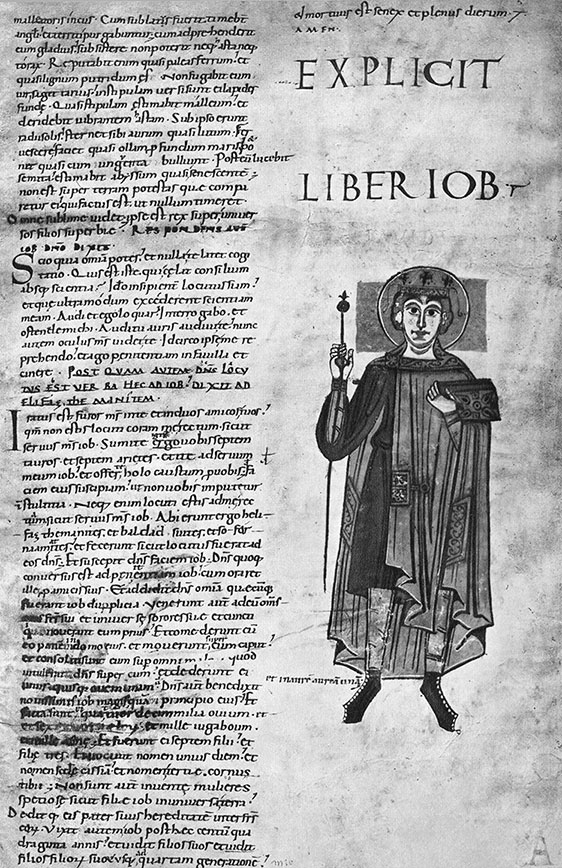 malleatoris incus. Cum sublatus fuerit timebt
angli et territi purgabuntur. cum adprehenderit
eum gladius. subsistere non poterit neq; asta neq;
torax. Reputabit enim quasi paleas ferrum. et
quasi lignum putridum es. Non fugabit eum
vir sagittarius. in stipulam versi sunt ei lapides
funde. Quasi stipulam estimabit malleum. et
deridebit vibrantem astam. Sub ipso erunt
radii solis. sternet sibi aurum quasi lutum. fer
vescere faciet quasi ollam profundum maris. po
net quasi cum ungenta bulliunt. Post eum lucebit
semita. estimabit abyssum quasi senescente.
non est super terram potestas que compa
retur ei qui factus est. ut nullum timeret.
Omne sublime videt. ipse est rex super univer
sos filios superbie. RESPONDENS AUT
IOB DNO DIXIT.
Scio quia omnia potes. et nulla te latet cogi
tatio. Quis est iste. qui celat consilium
absq; scientia. Ido insipienter locutus sum.
et que ultra modum excederent scientiam
meam. Audi et ego loquar. Interrogabo. et
ostende michi. Auditu auris audivi te. nunc
autem oculus ms videt te. Idcirco ipse me re
prehendo. et ago penitentiam in favilla et
cinere. POST QUAM AUTEM DNS LOCU
TUS EST VERBA HEC AD IOB. DIXIT AD
ELIFAZ THEMANITEM.
Iratus est furor ms in te et in duos amicos tuos.
qm non estis locuti coram me rectum. sicut
servus ms iob. Sumite ergo vobis septem
tauros. et septem arietes. et ite ad servum
meum iob. et offerte holocaustum pro vobis.
faciem eius suscipiam. ut non vobis imputetur
stultitia. Neq; enim locuti estis ad me recte
sicut servus ms iob. Abierunt ergo heli
faz themanites. et baldad suites. et sofar
naamites. et fecerunt sicut locutus fuerat ad
eos dns. Et suscepit dns faciem iob. Dns quoq;
conversus est ad penitentiam iob. cum oraret
ille pro amicis suis. Et addidit dns omnia quecuq;
fuerant iob duplicia. Venerunt aut ad eum oms
fratres sui et universe sorores sue. et cuncti
qui noverant eum prius. Et comederunt cu
eo panem in domo eius. et moverunt super eum caput.
et consolati sunt eum super omni quod
intulerat dns super eum. et dederunt ei
unus quisq; ovem unam. Dns aut benedixit
novissimis iob magis qua principio eius. Et
facta sunt ei quattuordecim milia ovium. et
sex et mille iuga boum.
et mille asine. Et fuerunt ei septem filii. et
filie tres. Et vocavit nomen unius diem. et
nomen scde cassia. et nomen tertie. cornus
tibii. Non sunt aut invente mulieres
speciose sicut filie iob in universa terra.
Dedit q; eis pater suus hereditate inter frs
eoru. Vixit autem iob post hec centu qua
draginta annis. et vidit filios suos et
filios filioru suoru usq; ad quartam generatione.
et mortuus est senex et plenus dierum.
AMEN.
EXPLICIT
LIBER IOB